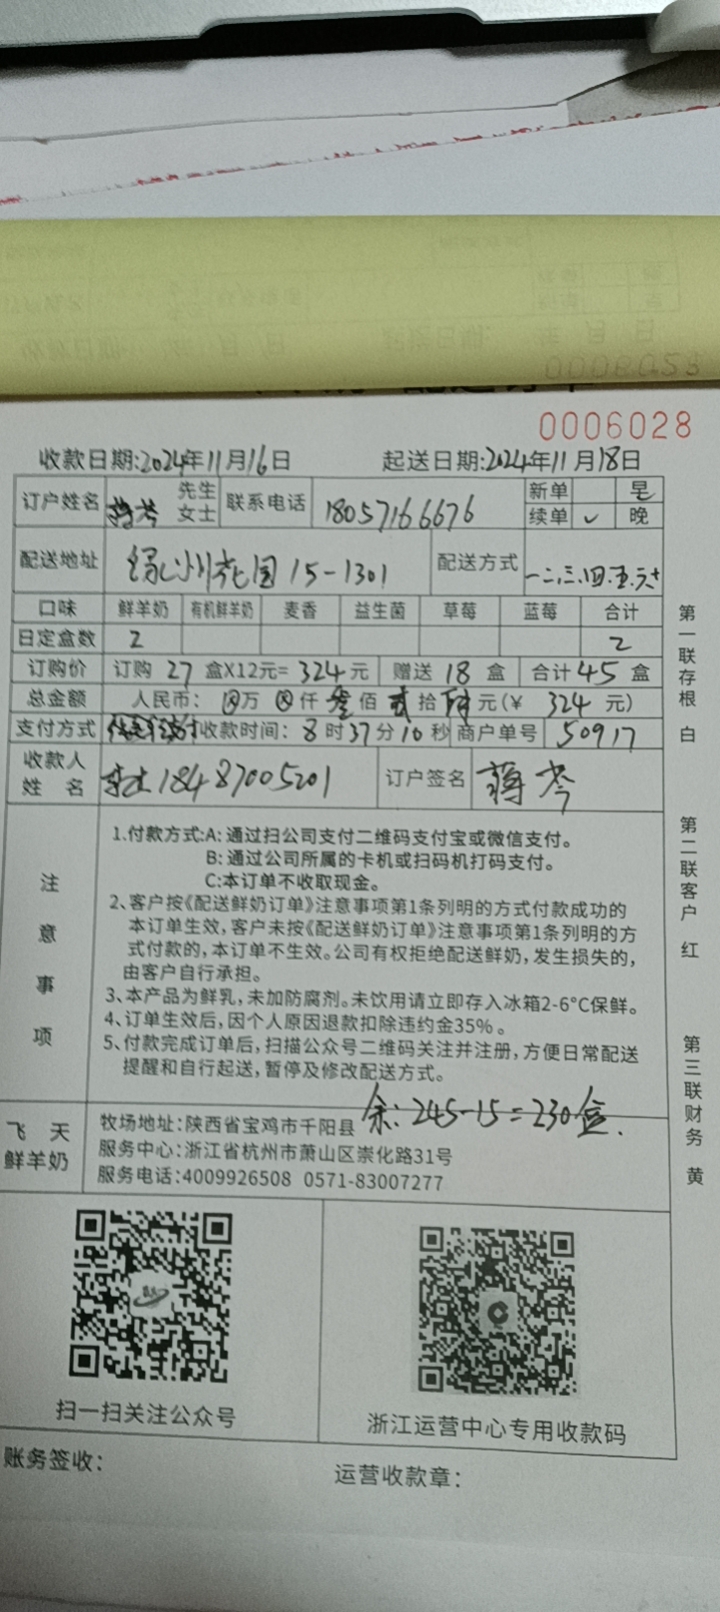 0006028
收款日期:2024年11月16日 起送日期:2024年11月18日
订户姓名 蒋岑 先生 女士 联系电话 18057166676 新单 早
续单 ✓ 晚
配送地址 绿洲花园15-1301 配送方式 一二.三.四.五.六
口味 鲜羊奶 有机鲜羊奶 麦香 益生菌 草莓 蓝莓 合计
日定盒数 2 2
订购价 订购 27 盒X12元= 324元 赠送 18 盒 合计45 盒
总金额 人民币: 万 仟 叁佰 贰拾 肆元(¥ 324 元)
支付方式 收款时间: 8 时37分10秒 商户单号 50917
收款人 姓名 18487005201 订户签名 蒋岑
注意事项
1.付款方式:A: 通过扫公司支付二维码支付宝或微信支付。
B: 通过公司所属的卡机或扫码机打码支付。
C:本订单不收取现金。
2、客户按《配送鲜奶订单》注意事项第1条列明的方式付款成功的
本订单生效,客户未按《配送鲜奶订单》注意事项第1条列明的方
式付款的,本订单不生效。公司有权拒绝配送鲜奶,发生损失的,
由客户自行承担。
3、本产品为鲜乳,未加防腐剂。未饮用请立即存入冰箱2-6°C保鲜。
4、订单生效后,因个人原因退款扣除违约金35%。
5、付款完成订单后,扫描公众号二维码关注并注册,方便日常配送
提醒和自行起送,暂停及修改配送方式。
余: 245-15=230盒.
飞天
鲜羊奶
牧场地址:陕西省宝鸡市千阳县
服务中心:浙江省杭州市萧山区崇化路31号
服务电话:4009926508 0571-83007277
扫一扫关注公众号 浙江运营中心专用收款码
账务签收: 运营收款章:
第一联存根 白
第二联客户 红
第三联财务 黄